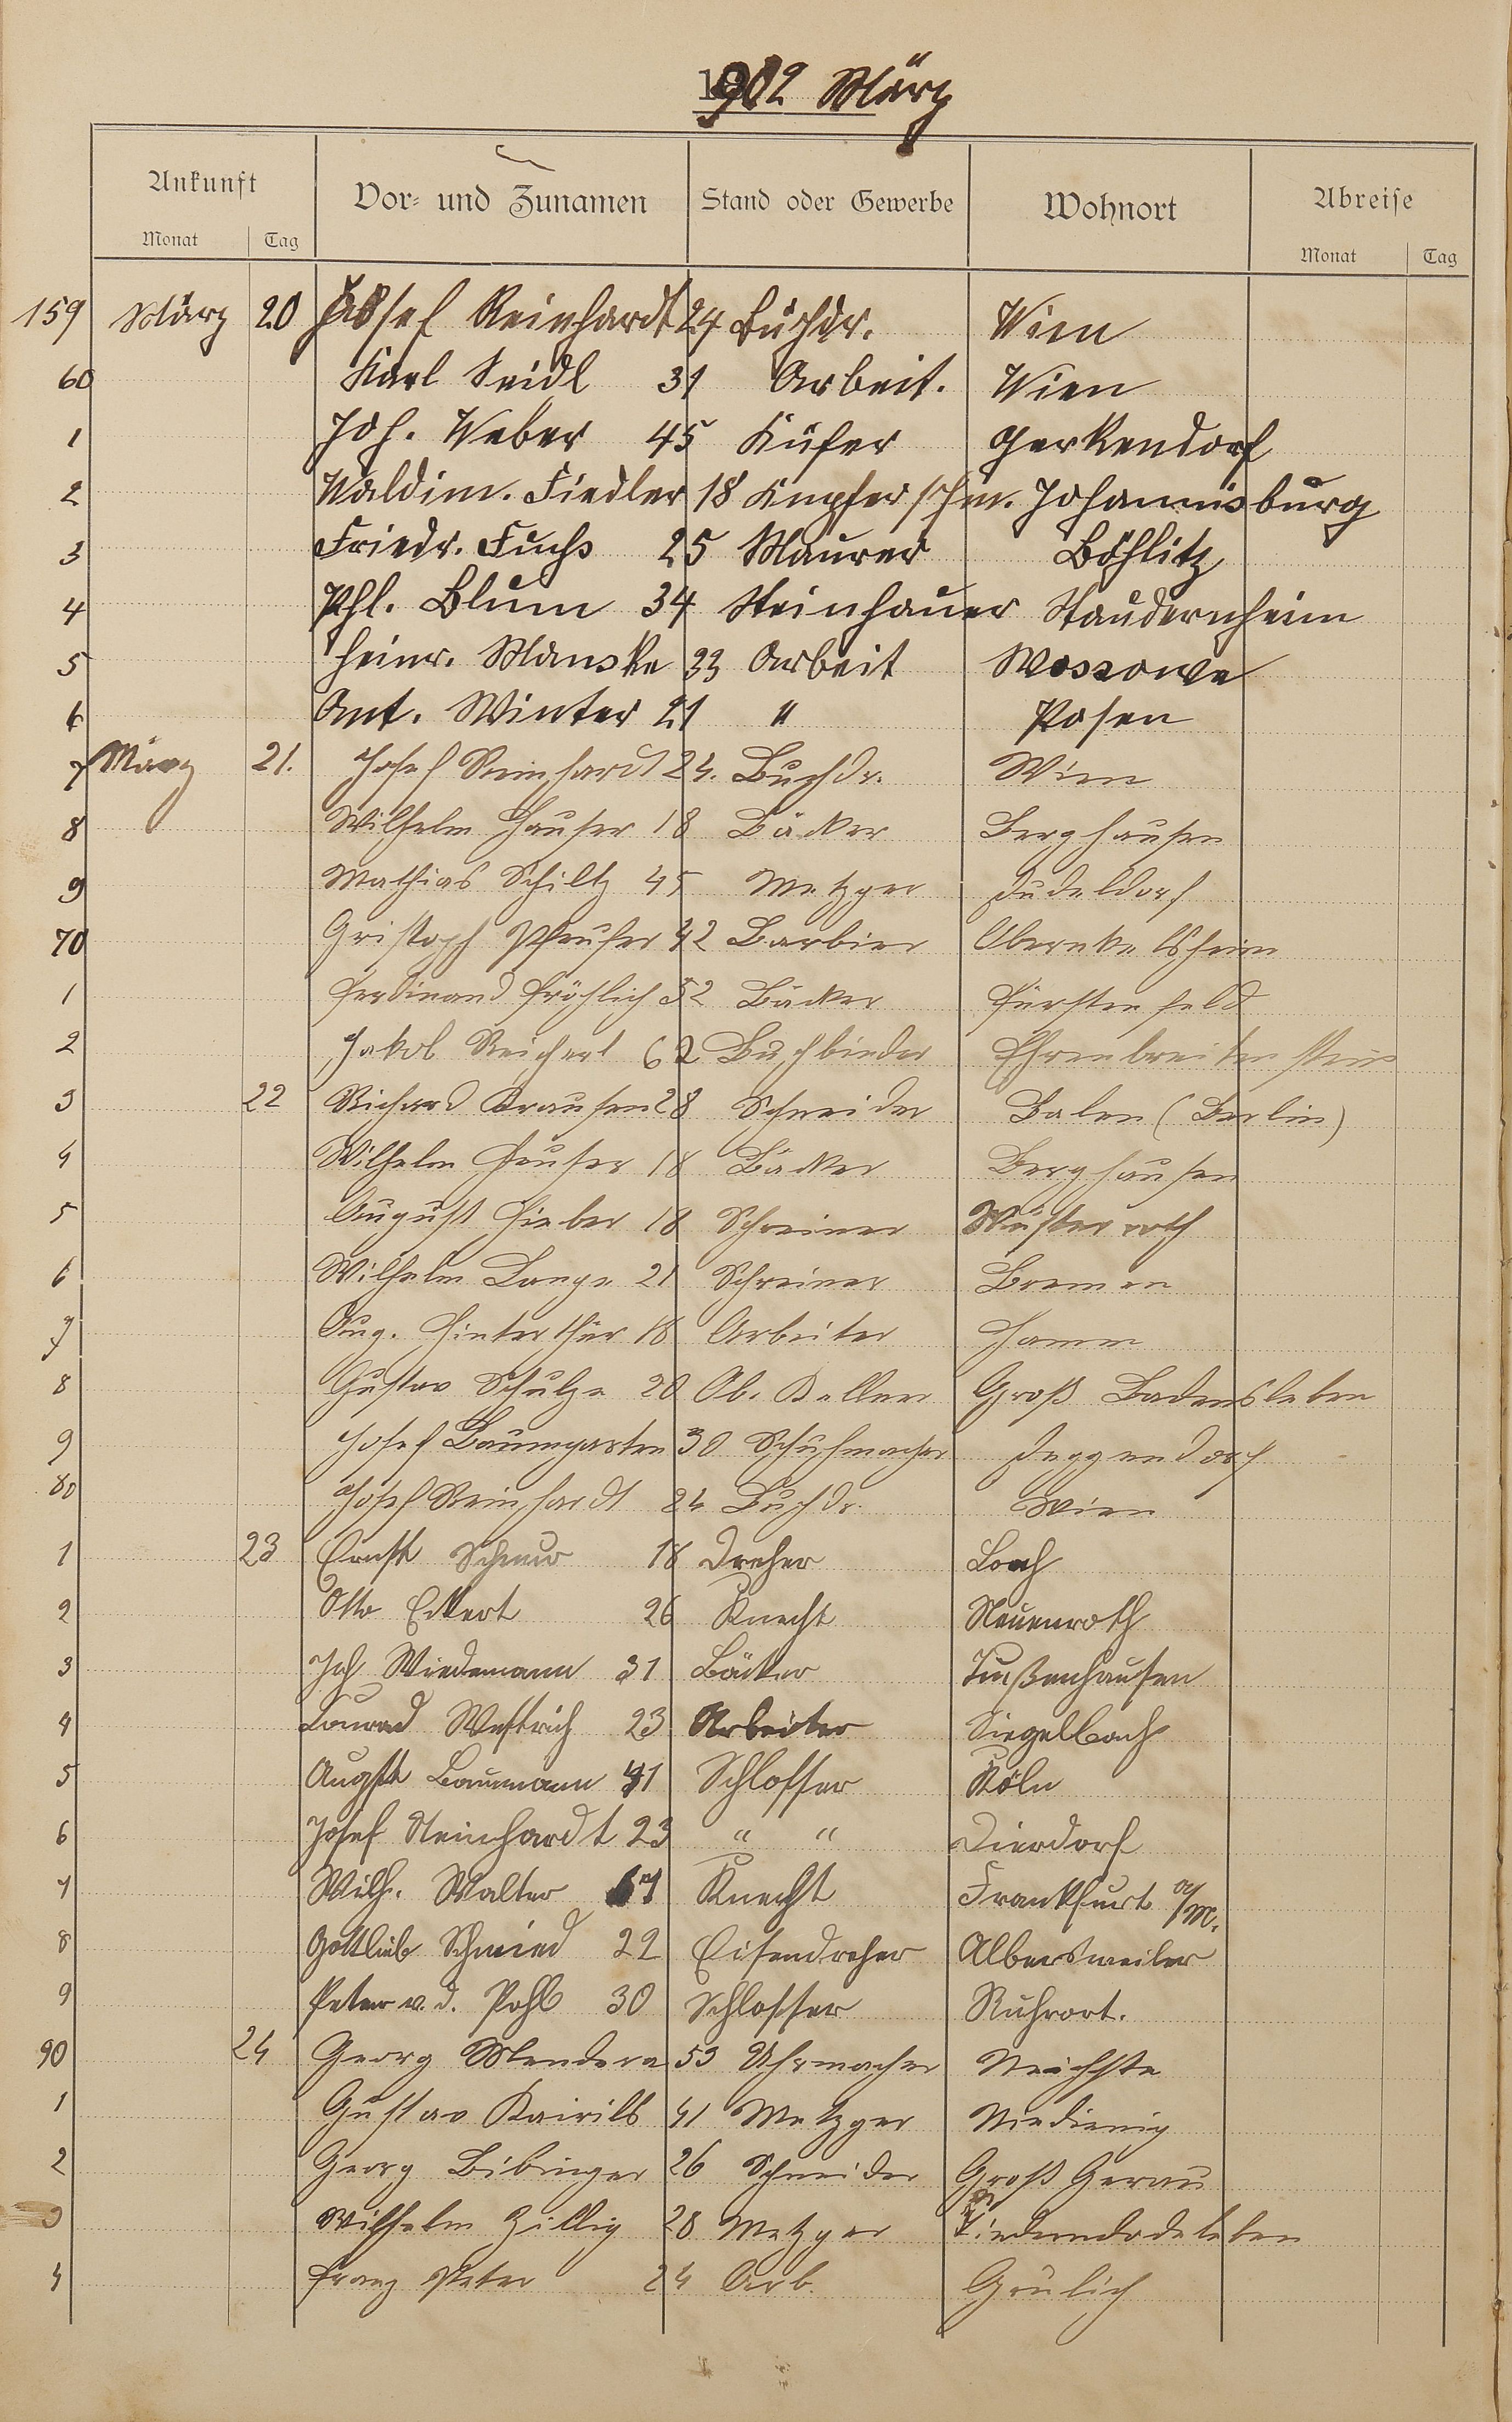 1902 März
Ankunft Vor- und Zunamen Stand oder Gewerbe Wohnort Abreise
Monat Tag Monat Tag
159 März 20 Josef Reinhardt 24 Buchdr. Wien
60 Karl Seidl 31 Arbeit. Wien
1 Joh. Weber 45 Küfer Gerkendorf
2 Waldim. Fiedler 18 Kupferschm. Johannisburg
3 Friedr. Fuchs 25 Maurer Böhlitz
4 Phl. Blum 34 Steinhauer Staudernheim
5 Heinr. Manske 33 Arbeit Wossowe
6 Ant. Winter 21 " Posen
7 März 21. Josef Reinhardt 24. Buchdr. Wien
8 Wilhelm Hauser 18 Bäcker Berghausen
9 Mathias Schiltz 45 Metzger Dudeldorf
70 Gristoph Pfeufer 42 Barbier
1 Ferdinand Fröhlich 52 Bäcker Fürstenfeld
2 Jakob Reichert 62 Buchbinder Ehrenbreitenstein
3 22 Richard Krausen 28 Schneider Balen (Berlin)
4 Wilhelm Heuser 18 Bäcker Berghausen
5 August Hieber 18 Schreiner Wüstenroth
6 Wilhelm Lange 21 Schreiner Bremen
7 Aug. Hinterthür 18 Arbeiter Hamm
8 Gustav Schulze 20 Ob. Kellner Groß Badensleben
9 Josef Baumgarten 30 Schuhmacher Deggendorf
80 Josef Reinhardt 24 Buchdr. Wien
1 23 Ernst 18 Dreher Loch
2 Otto Eckert 26 Knecht Neuenroth
3 Joh Wiedemann 31 Bäcker Tußenhausen
4 Conrad Westrich 23 Arbeiter Siegelbach
5 August Baumann 41 Schlosser Köln
6 Josef Steinhardt 23 " " Dierdorf
7 Wilh. Walter 67 Knecht Frankfurt a/M.
8 Gottlieb Schmied 22 Eisendreher Albersweiler
9 Peter v. d. Pohl 30 Schlosser Ruhrort.
90 24 Georg Mendera 53 Uhrmacher
1 Gustav 41 Metzger
2 Georg Bibinger 26 Schneider Groß Gerau
3 Wilhelm Zillig 28 Metzger
4 Franz Peter 24 Arb. Grulich